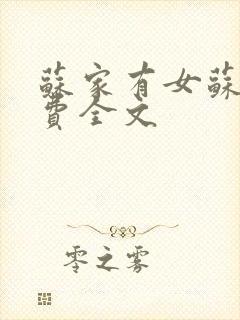 蘇家有女蘇
費全文
零之雾